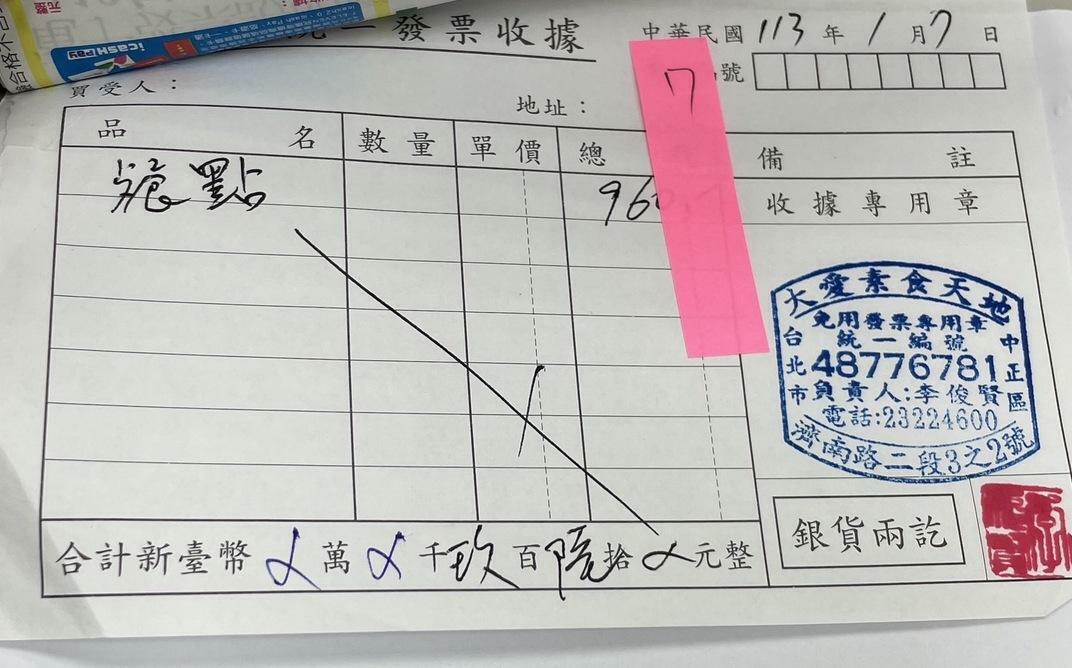 發票收據
中華民國 113 年 1 月 7 日
號
買受人：
地址：
7
品名 數量 單價 總 備註
餐點 960
收據專用章
大愛素食天地
免用發票專用章
統一編號
48776781
負責人:李俊賢
電話:23224600
台北市
中正區
濟南路二段3之2號
合計新臺幣 萬 千玖百陸拾 元整
銀貨兩訖
icash Pay